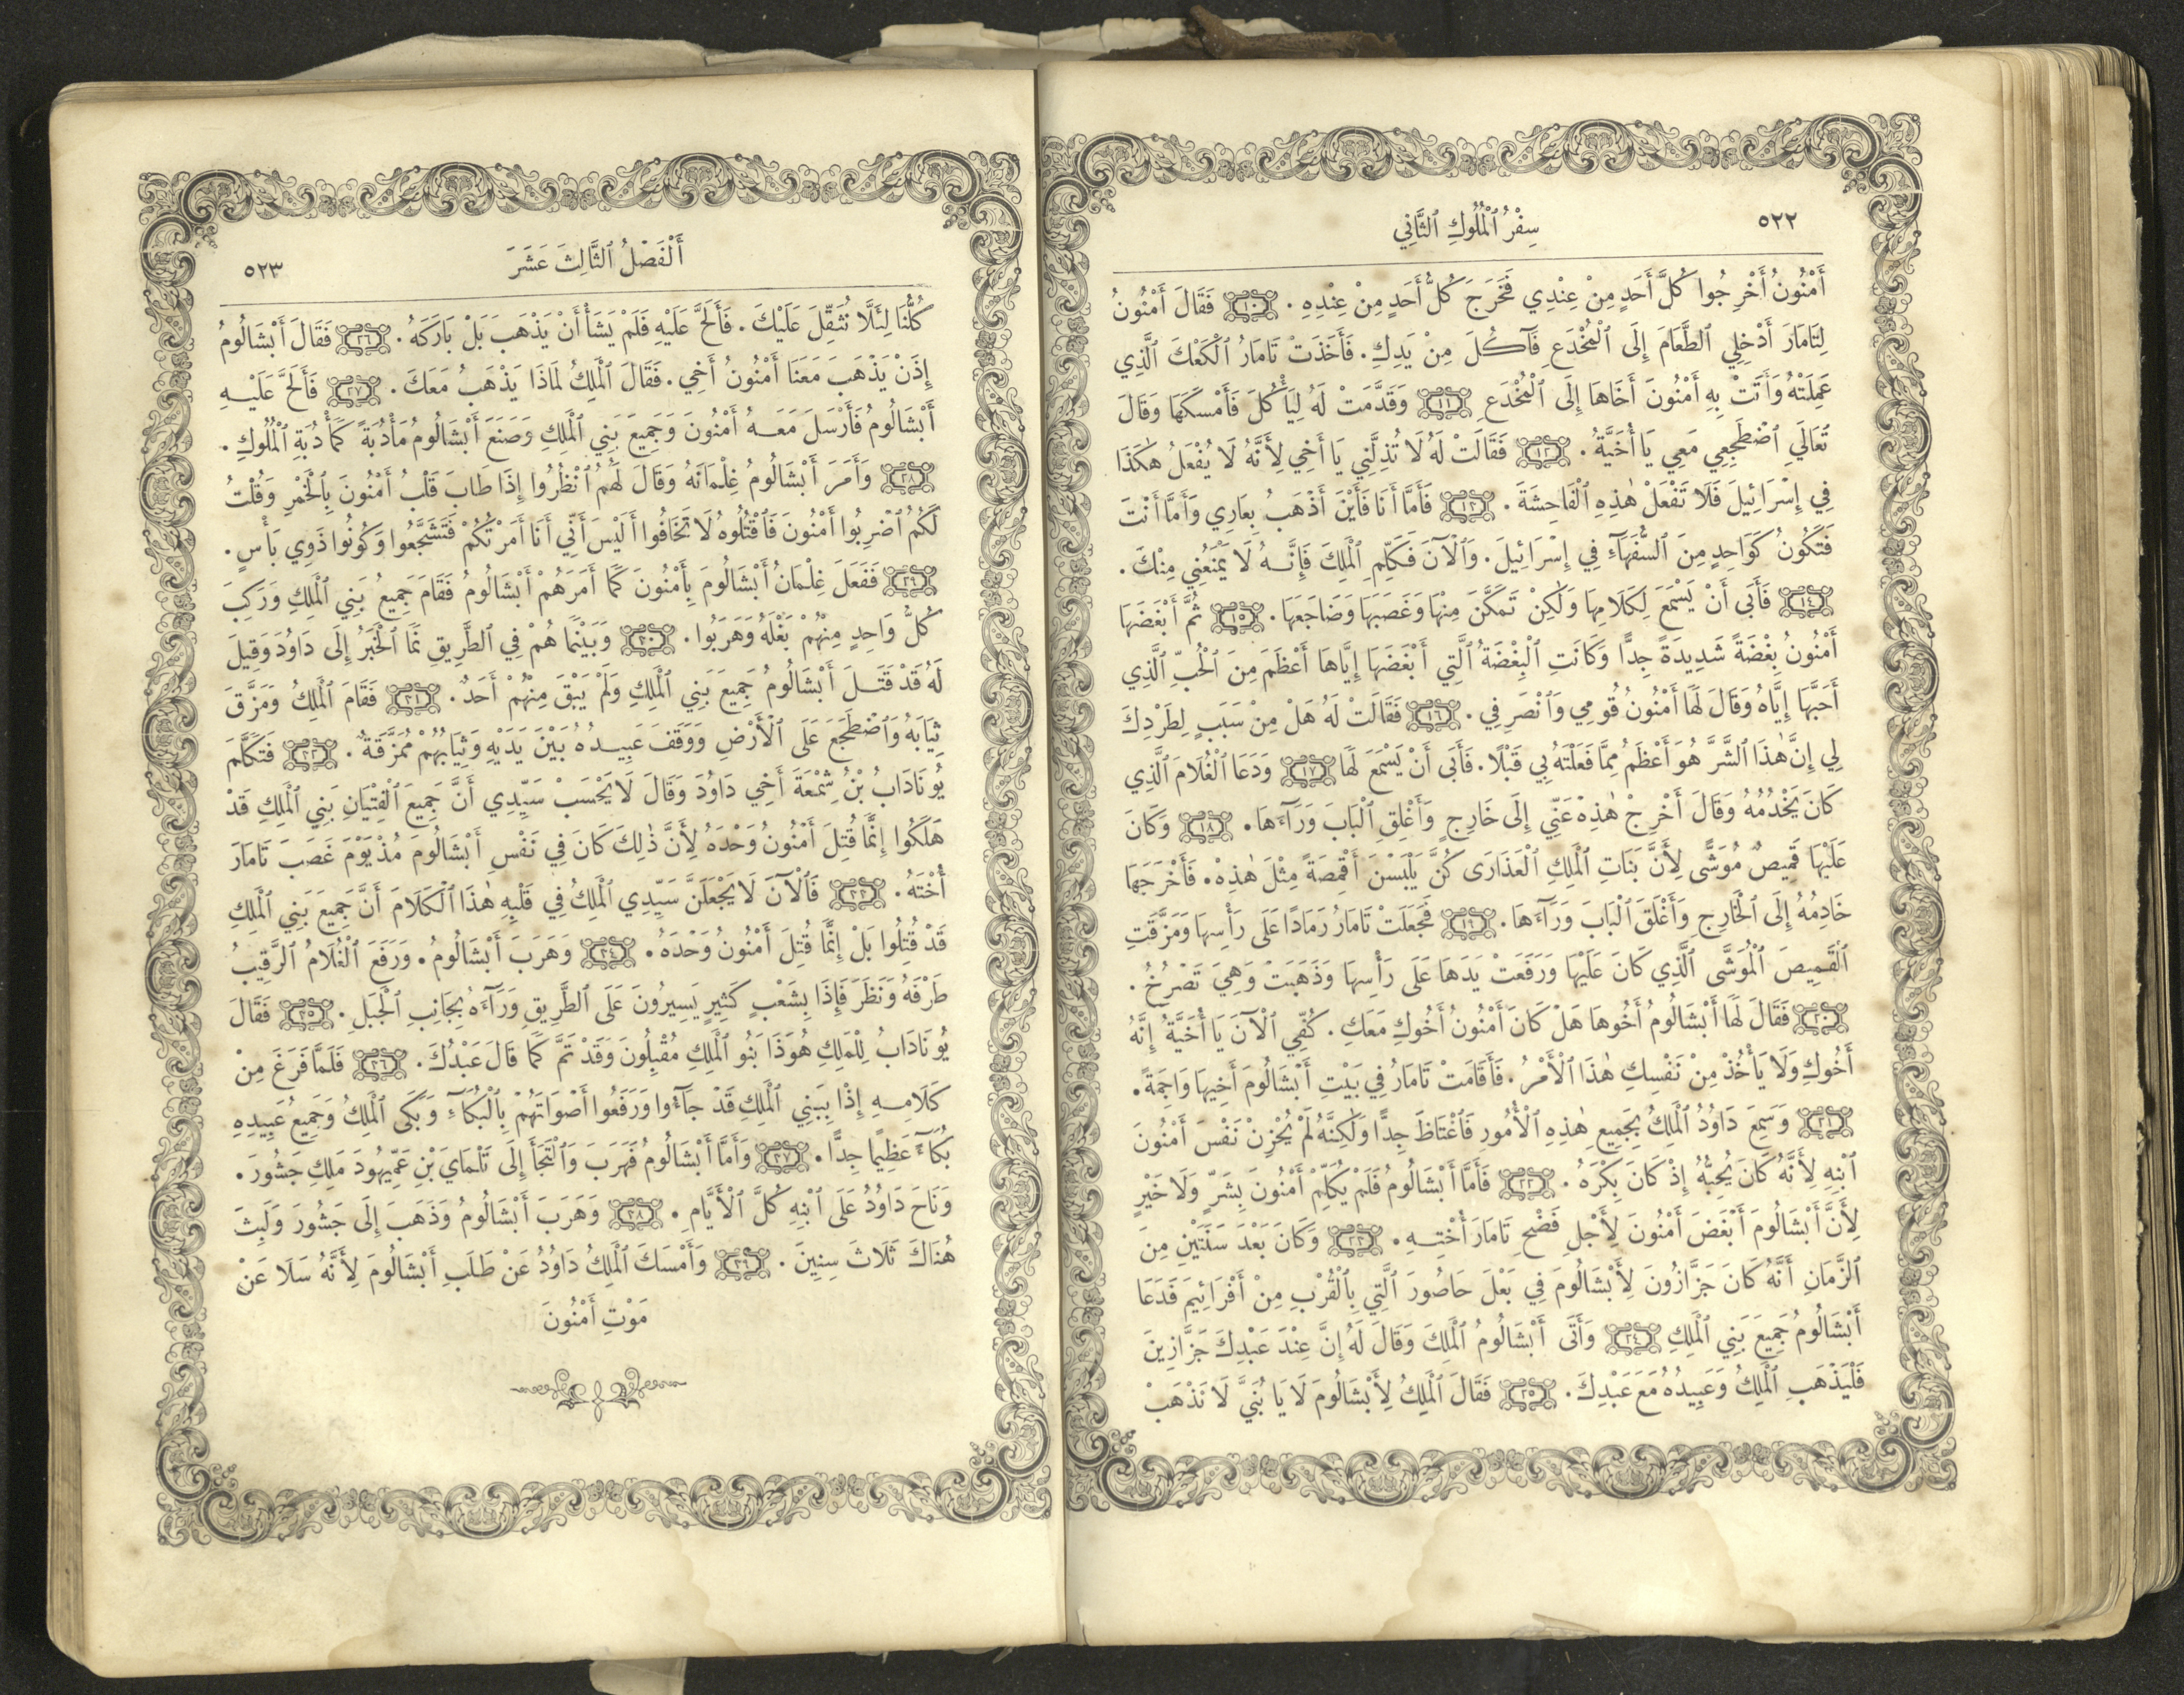 ٥٢٢
سِفْرُ ٱلْمُلُوكِ ٱلثَّانِي
أَمْنُونُ أَخْرِجُوا كُلَّ أَحَدٍ مِنْ عِنْدِي فَخَرَجَ كُلُّ أَحَدٍ مِنْ عِنْدِهِ . ١٠ فَقَالَ أَمْنُونُ
لِتَامَارَ أَدْخِلِي ٱلطَّعَامَ إِلَى ٱلْمُخْدَعِ فَآكُلَ مِنْ يَدِكِ . فَأَخَذَتْ تَامَارُ ٱلْكَعْكَ ٱلَّذِي
عَمِلَتْهُ وَأَتَتْ بِهِ أَمْنُونَ أَخَاهَا إِلَى ٱلْمُخْدَعِ ١١ وَقَدَّمَتْ لَهُ لِيَأْكُلَ فَأَمْسَكَهَا وَقَالَ
تَعَالَيِ ٱضْطَجِعِي مَعِي يَا أُخَيَّةُ . ١٢ فَقَالَتْ لَهُ لَا تُذِلَّنِي يَا أَخِي لِأَنَّهُ لَا يُفْعَلُ هٰكَذَا
فِي إِسْرَائِيلَ فَلَا تَفْعَلْ هٰذِهِ ٱلْفَاحِشَةَ . ١٣ فَأَمَّا أَنَا فَأَيْنَ أَذْهَبُ بِعَارِي وَأَمَّا أَنْتَ
فَتَكُونُ كَوَاحِدٍ مِنَ ٱلسُّفَهَآءِ فِي إِسْرَائِيلَ . وَٱلْآنَ فَكَلِّمِ ٱلْمَلِكَ فَإِنَّهُ لَا يَمْنَعُنِي مِنْكَ .
١٤ فَأَبَى أَنْ يَسْمَعَ لِكَلَامِهَا وَلٰكِنْ تَمَكَّنَ مِنْهَا وَغَصَبَهَا وَضَاجَعَهَا . ١٥ ثُمَّ أَبْغَضَهَا
أَمْنُونُ بِغْضَةً شَدِيدَةً جِدًّا وَكَانَتِ ٱلْبِغْضَةُ ٱلَّتِي أَبْغَضَهَا إِيَّاهَا أَعْظَمَ مِنَ ٱلْحُبِّ ٱلَّذِي
أَحَبَّهَا إِيَّاهُ وَقَالَ لَهَا أَمْنُونُ قُومِي وَٱنْصَرِفِي . ١٦ فَقَالَتْ لَهُ هَلْ مِنْ سَبَبٍ لِطَرْدِكَ
لِي إِنَّ هٰذَا ٱلشَّرَّ هُوَ أَعْظَمُ مِمَّا فَعَلْتَهُ بِي قَبْلًا . فَأَبَى أَنْ يَسْمَعَ لَهَا ١٧ وَدَعَا ٱلْغُلَامَ ٱلَّذِي
كَانَ يَخْدُمُهُ وَقَالَ أَخْرِجْ هٰذِهْ عَنِّي إِلَى خَارِجٍ وَأَغْلِقِ ٱلْبَابَ وَرَآءَهَا . ١٨ وَكَانَ
عَلَيْهَا قَمِيصٌ مُوَشًّى لِأَنَّ بَنَاتِ ٱلْمَلِكِ ٱلْعَذَارَى كُنَّ يَلْبَسْنَ أَقْمِصَةً مِثْلَ هٰذِهْ . فَأَخْرَجَهَا
خَادِمُهُ إِلَى ٱلْخَارِجِ وَأَغْلَقَ ٱلْبَابَ وَرَآءَهَا . ١٩ فَجَعَلَتْ تَامَارُ رَمَادًا عَلَى رَأْسِهَا وَمَزَّقَتِ
ٱلْقَمِيصَ ٱلْمُوَشَّى ٱلَّذِي كَانَ عَلَيْهَا وَرَفَعَتْ يَدَهَا عَلَى رَأْسِهَا وَذَهَبَتْ وَهِيَ تَصْرُخُ .
٢٠ فَقَالَ لَهَا أَبْشَالُومُ أَخُوهَا هَلْ كَانَ أَمْنُونُ أَخُوكِ مَعَكِ . كُفِّي ٱلْآنَ يَا أُخَيَّةُ إِنَّهُ
أَخُوكِ وَلَا يَأْخُذْ مِنْ نَفْسِكِ هٰذَا ٱلْأَمْرُ . فَأَقَامَتْ تَامَارُ فِي بَيْتِ أَبْشَالُومَ أَخِيهَا وَاجِمَةً .
٢١ وَسَمِعَ دَاوُدُ ٱلْمَلِكُ بِجَمِيعِ هٰذِهِ ٱلْأُمُورِ فَٱغْتَاظَ جِدًّا وَلٰكِنَّهُ لَمْ يُحْزِنْ نَفْسَ أَمْنُونَ
ٱبْنِهِ لِأَنَّهُ كَانَ يُحِبُّهُ إِذْ كَانَ بِكْرَهُ . ٢٢ فَأَمَّا أَبْشَالُومُ فَلَمْ يُكَلِّمْ أَمْنُونَ بِشَرٍّ وَلَا خَيْرٍ
لِأَنَّ أَبْشَالُومَ أَبْغَضَ أَمْنُونَ لِأَجْلِ فَضْحِ تَامَارَ أُخْتِهِ . ٢٣ وَكَانَ بَعْدَ سَنَتَيْنِ مِنَ
ٱلزَّمَانِ أَنَّهُ كَانَ جَزَّازُونَ لِأَبْشَالُومَ فِي بَعْلَ حَاصُورَ ٱلَّتِي بِٱلْقُرْبِ مِنْ أَفْرَائِيمَ فَدَعَا
أَبْشَالُومُ جَمِيعَ بَنِي ٱلْمَلِكِ ٢٤ وَأَتَى أَبْشَالُومُ ٱلْمَلِكَ وَقَالَ لَهُ إِنَّ عِنْدَ عَبْدِكَ جَزَّازِينَ
فَلْيَذْهَبِ ٱلْمَلِكُ وَعَبِيدُهُ مَعَ عَبْدِكَ . ٢٥ فَقَالَ ٱلْمَلِكُ لِأَبْشَالُومَ لَا يَا بُنَيَّ لَا نَذْهَبْ
أَلْفَصْلُ ٱلثَّالِثَ عَشَرَ
٥٢٣
كُلُّنَا لِئَلَّا نُثَقِّلَ عَلَيْكَ . فَأَلَحَّ عَلَيْهِ فَلَمْ يَشَأْ أَنْ يَذْهَبَ بَلْ بَارَكَهُ . ٢٦ فَقَالَ أَبْشَالُومُ
إِذَنْ يَذْهَبَ مَعَنَا أَمْنُونُ أَخِي . فَقَالَ ٱلْمَلِكُ لِمَاذَا يَذْهَبُ مَعَكَ . ٢٧ فَأَلَحَّ عَلَيْهِ
أَبْشَالُومُ فَأَرْسَلَ مَعَهُ أَمْنُونَ وَجَمِيعَ بَنِي ٱلْمَلِكِ وَصَنَعَ أَبْشَالُومُ مَأْدُبَةً كَمَأْدُبَةِ ٱلْمُلُوكِ .
٢٨ وَأَمَرَ أَبْشَالُومُ غِلْمَانَهُ وَقَالَ لَهُمُ ٱنْظُرُوا إِذَا طَابَ قَلْبُ أَمْنُونَ بِٱلْخَمْرِ وَقُلْتُ
لَكُمُ ٱضْرِبُوا أَمْنُونَ فَٱقْتُلُوهُ لَا تَخَافُوا أَلَيْسَ أَنِّي أَنَا أَمَرْتُكُمْ فَتَشَجَّعُوا وَكُونُوا ذَوِي بَأْسٍ .
٢٩ فَفَعَلَ غِلْمَانُ أَبْشَالُومَ بِأَمْنُونَ كَمَا أَمَرَهُمْ أَبْشَالُومُ فَقَامَ جَمِيعُ بَنِي ٱلْمَلِكِ وَرَكِبَ
كُلُّ وَاحِدٍ مِنْهُمْ بَغْلَهُ وَهَرَبُوا . ٣٠ وَبَيْنَمَا هُمْ فِي ٱلطَّرِيقِ نَمَا ٱلْخَبَرُ إِلَى دَاوُدَ وَقِيلَ
لَهُ قَدْ قَتَلَ أَبْشَالُومُ جَمِيعَ بَنِي ٱلْمَلِكِ وَلَمْ يَبْقَ مِنْهُمْ أَحَدٌ . ٣١ فَقَامَ ٱلْمَلِكُ وَمَزَّقَ
ثِيَابَهُ وَٱضْطَجَعَ عَلَى ٱلْأَرْضِ وَوَقَفَ عَبِيدُهُ بَيْنَ يَدَيْهِ وَثِيَابُهُمْ مُمَزَّقَةٌ . ٣٢ فَتَكَلَّمَ
يُونَادَابُ بْنُ شِمْعَةَ أَخِي دَاوُدَ وَقَالَ لَا يَحْسَبْ سَيِّدِي أَنَّ جَمِيعَ ٱلْفِتْيَانِ بَنِي ٱلْمَلِكِ قَدْ
هَلَكُوا إِنَّمَا قُتِلَ أَمْنُونُ وَحْدَهُ لِأَنَّ ذٰلِكَ كَانَ فِي نَفْسِ أَبْشَالُومَ مُذْ يَوْمَ غَصَبَ تَامَارَ
أُخْتَهُ . ٣٣ فَٱلْآنَ لَا يَجْعَلَنَّ سَيِّدِي ٱلْمَلِكُ فِي قَلْبِهِ هٰذَا ٱلْكَلَامَ أَنَّ جَمِيعَ بَنِي ٱلْمَلِكِ
قَدْ قُتِلُوا بَلْ إِنَّمَا قُتِلَ أَمْنُونُ وَحْدَهُ . ٣٤ وَهَرَبَ أَبْشَالُومُ . وَرَفَعَ ٱلْغُلَامُ ٱلرَّقِيبُ
طَرْفَهُ وَنَظَرَ فَإِذَا بِشَعْبٍ كَثِيرٍ يَسِيرُونَ عَلَى ٱلطَّرِيقِ وَرَآءَهُ بِجَانِبِ ٱلْجَبَلِ . ٣٥ فَقَالَ
يُونَادَابُ لِلْمَلِكِ هُوَذَا بَنُو ٱلْمَلِكِ مُقْبِلُونَ وَقَدْ تَمَّ كَمَا قَالَ عَبْدُكَ . ٣٦ فَلَمَّا فَرَغَ مِنْ
كَلَامِهِ إِذْا بِبَنِي ٱلْمَلِكِ قَدْ جَآءُوا وَرَفَعُوا أَصْوَاتَهُمْ بِٱلْبُكَآءِ وَبَكَى ٱلْمَلِكُ وَجَمِيعُ عَبِيدِهِ
بُكَآءً عَظِيمًا جِدًّا . ٣٧ وَأَمَّا أَبْشَالُومُ فَهَرَبَ وَٱلْتَجَأَ إِلَى تَلْمَايَ بْنِ عَمِّيهُودَ مَلِكِ جَشُورَ .
وَنَاحَ دَاوُدُ عَلَى ٱبْنِهِ كُلَّ ٱلْأَيَّامِ . ٣٨ وَهَرَبَ أَبْشَالُومُ وَذَهَبَ إِلَى جَشُورَ وَلَبِثَ
هُنَاكَ ثَلَاثَ سِنِينَ . ٣٩ وَأَمْسَكَ ٱلْمَلِكُ دَاوُدُ عَنْ طَلَبِ أَبْشَالُومَ لِأَنَّهُ سَلَا عَنْ
مَوْتِ أَمْنُونَ